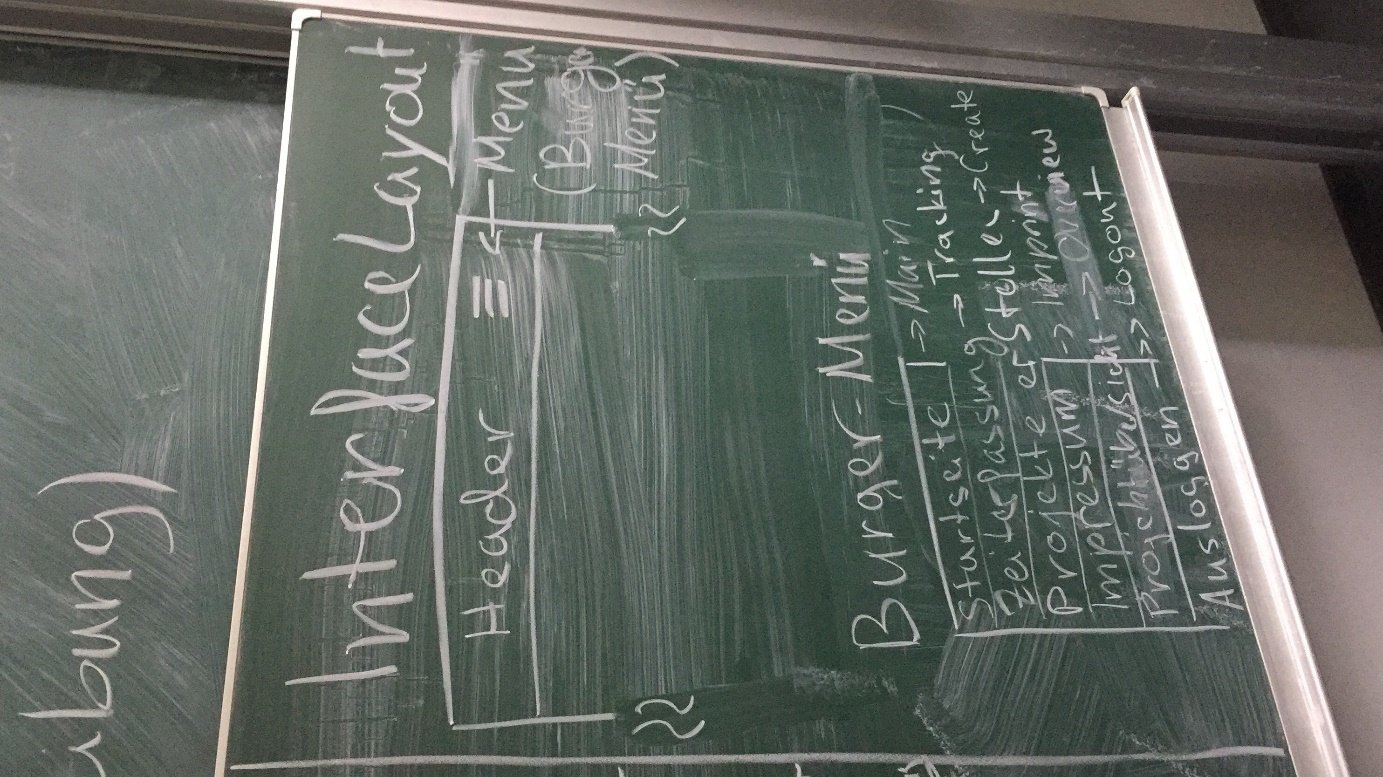 Interface Layout
Header ≡ ← Menu
(Burger
Menü)
Burger-Menü
Startseite -> Main
Zeitaspassung -> Tracking
Projekte erstellen -> Create
Impressum -> Imprint
Projektübersicht -> Overview
Ausloggen -> Logout
bung)